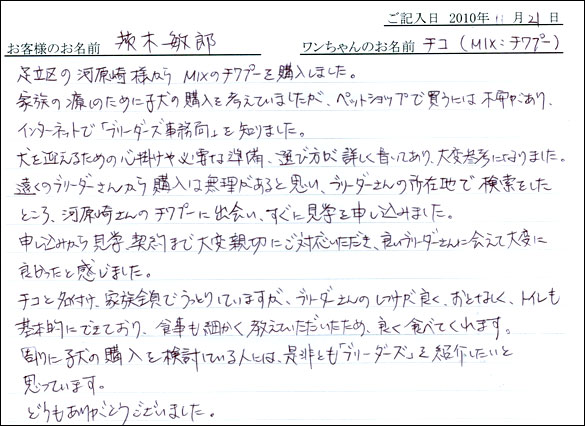 ご記入日 2010年 11月 21日
お客様のお名前 茂木敏郎 ワンちゃんのお名前 チコ (MIX:チワプー)
足立区の河原崎様から MIXのチワプーを購入しました。
家族の癒しのために子犬の購入を考えていましたが、ペットショップで買うには不安があり、
インターネットで「ブリーダーズ事務局」を知りました。
犬を迎えるための心掛けや必要な準備、選び方が詳しく書いてあり、大変参考になりました。
遠くのブリーダーさんから購入は無理があると思い、ブリーダーさんの所在地で検索をした
ところ、河原崎さんのチワプーに出会い、すぐに見学を申し込みました。
申し込みから見学、契約まで大変親切にご対応いただき、良いブリーダーさんに会えて大変に
良かったと感じました。
チコと名付け、家族全員でうっとりしていますが、ブリーダーさんのしつけが良く、おとなしく、トイレも
基本的にできており、食事も細かく教えていただいたため、良く食べてくれます。
周りに子犬の購入を検討している人には、是非とも「ブリーダーズ」を紹介したいと
思っています。
どうもありがとうございました。